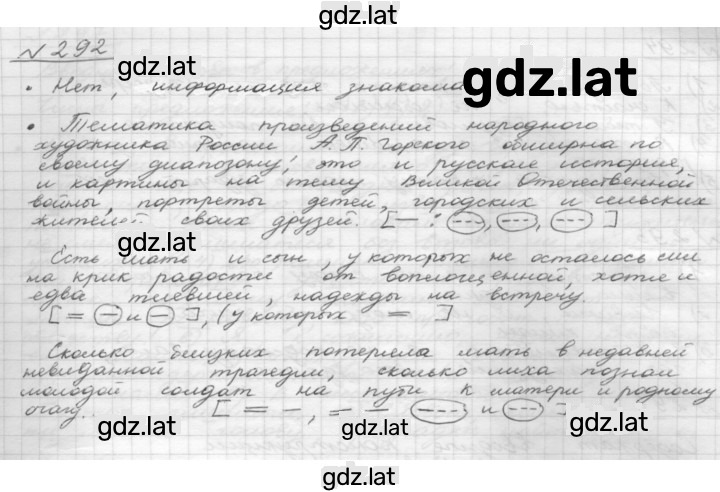 gdz.lat
№ 292
gdz.lat
• Нет, информация знакома
gdz.lat
• Тематика произведений народного
художника России А.П. Горского обширна по
своему диапозону; это и русская история,
и картины на тему Великой Отечественной
войны, портреты детей, городских и сельских
жителей своих друзей. [— : (---), (---), (---) ]
gdz.lat
gdz.lat
Есть мать и сын, у которых не осталось сил
на крик радости от воплощенной, хотя и
едва тлевшей, надежды на встречу.
[= (—) и (—) ], (у которых = ]
Сколько близких потеряла мать в недавней
невиданной трагедии, сколько лиха познал
молодой солдат на пути к матери и родному
очагу. [ = —, = — (---) и (---) ]
gdz.lat
gdz.lat
gdz.lat
gdz.lat